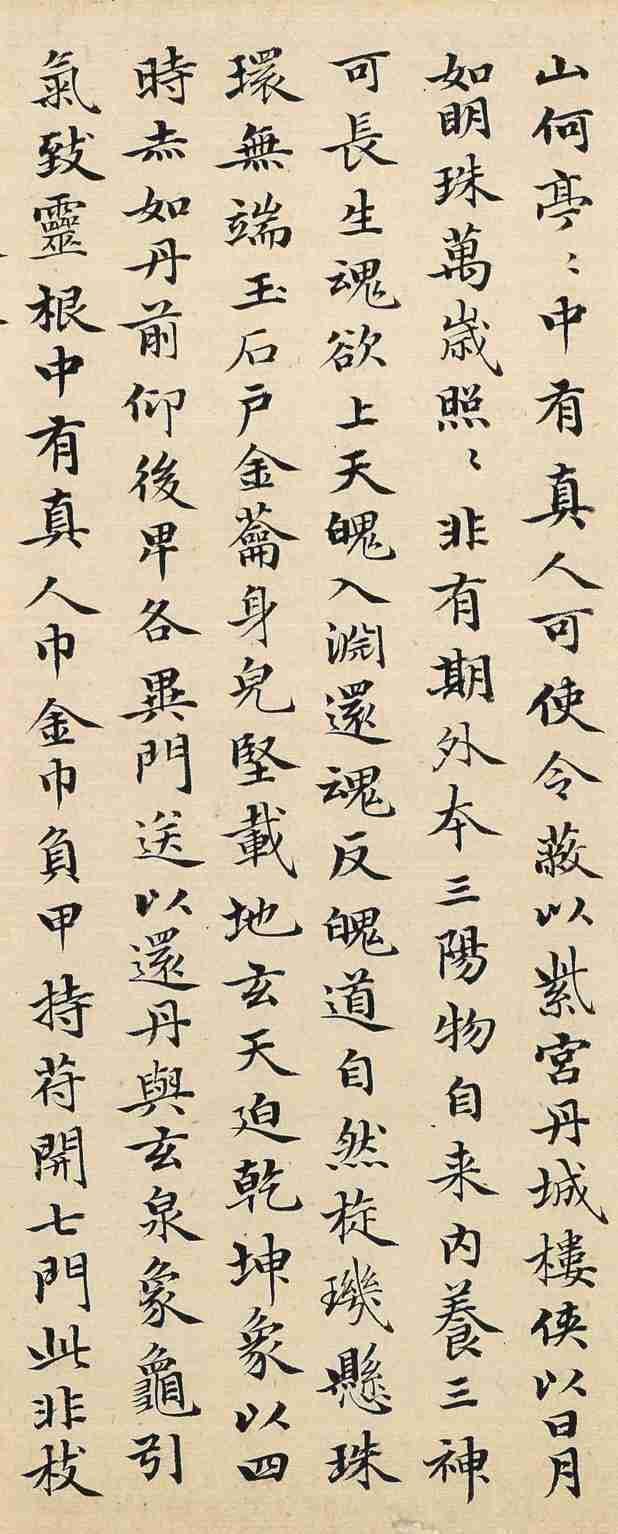 山何亭〻中有真人可使令蔽以紫宮丹城樓俠以日月
如明珠萬歲照〻非有期外本三陽物自来內養三神
可長生魂欲上天魄入淵還魂反魄道自然旋璣懸珠
環無端玉石戶金籥身皃堅載地玄天迫乾坤象以四
時赤如丹前仰後卑各異門送以還丹與玄泉象龜引
氣致靈根中有真人巾金巾負甲持苻開七門此非枝